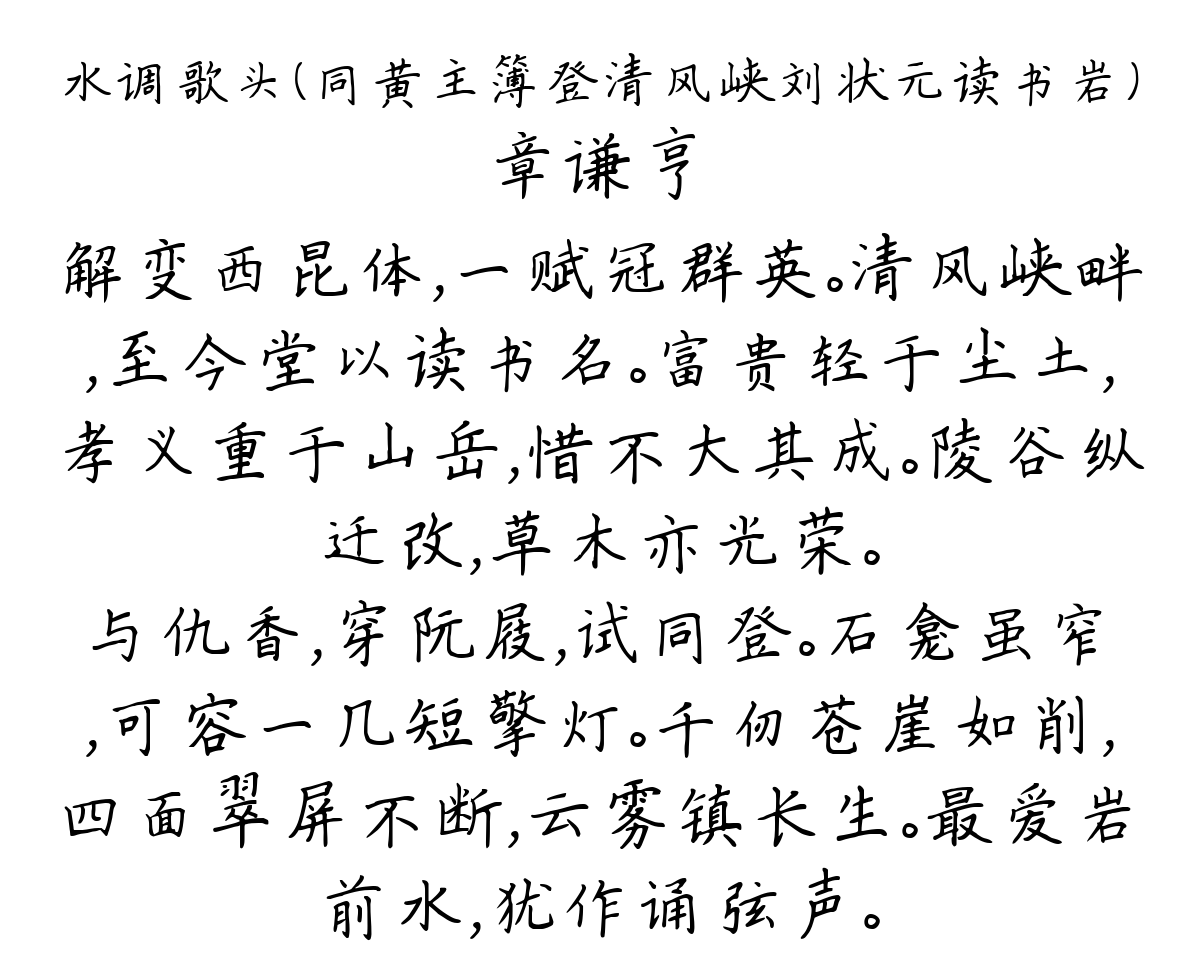 水调歌头(同黄主簿登清风峡刘状元读书岩)
章谦亨
解变西昆体,一赋冠群英。清风峡畔
,至今堂以读书名。富贵轻于尘土,
孝义重于山岳,惜不大其成。陵谷纵
迁改,草木亦光荣。
与仇香,穿阮屐,试同登。石龛虽窄
,可容一几短擎灯。千仞苍崖如削,
四面翠屏不断,云雾镇长生。最爱岩
前水,犹作诵弦声。